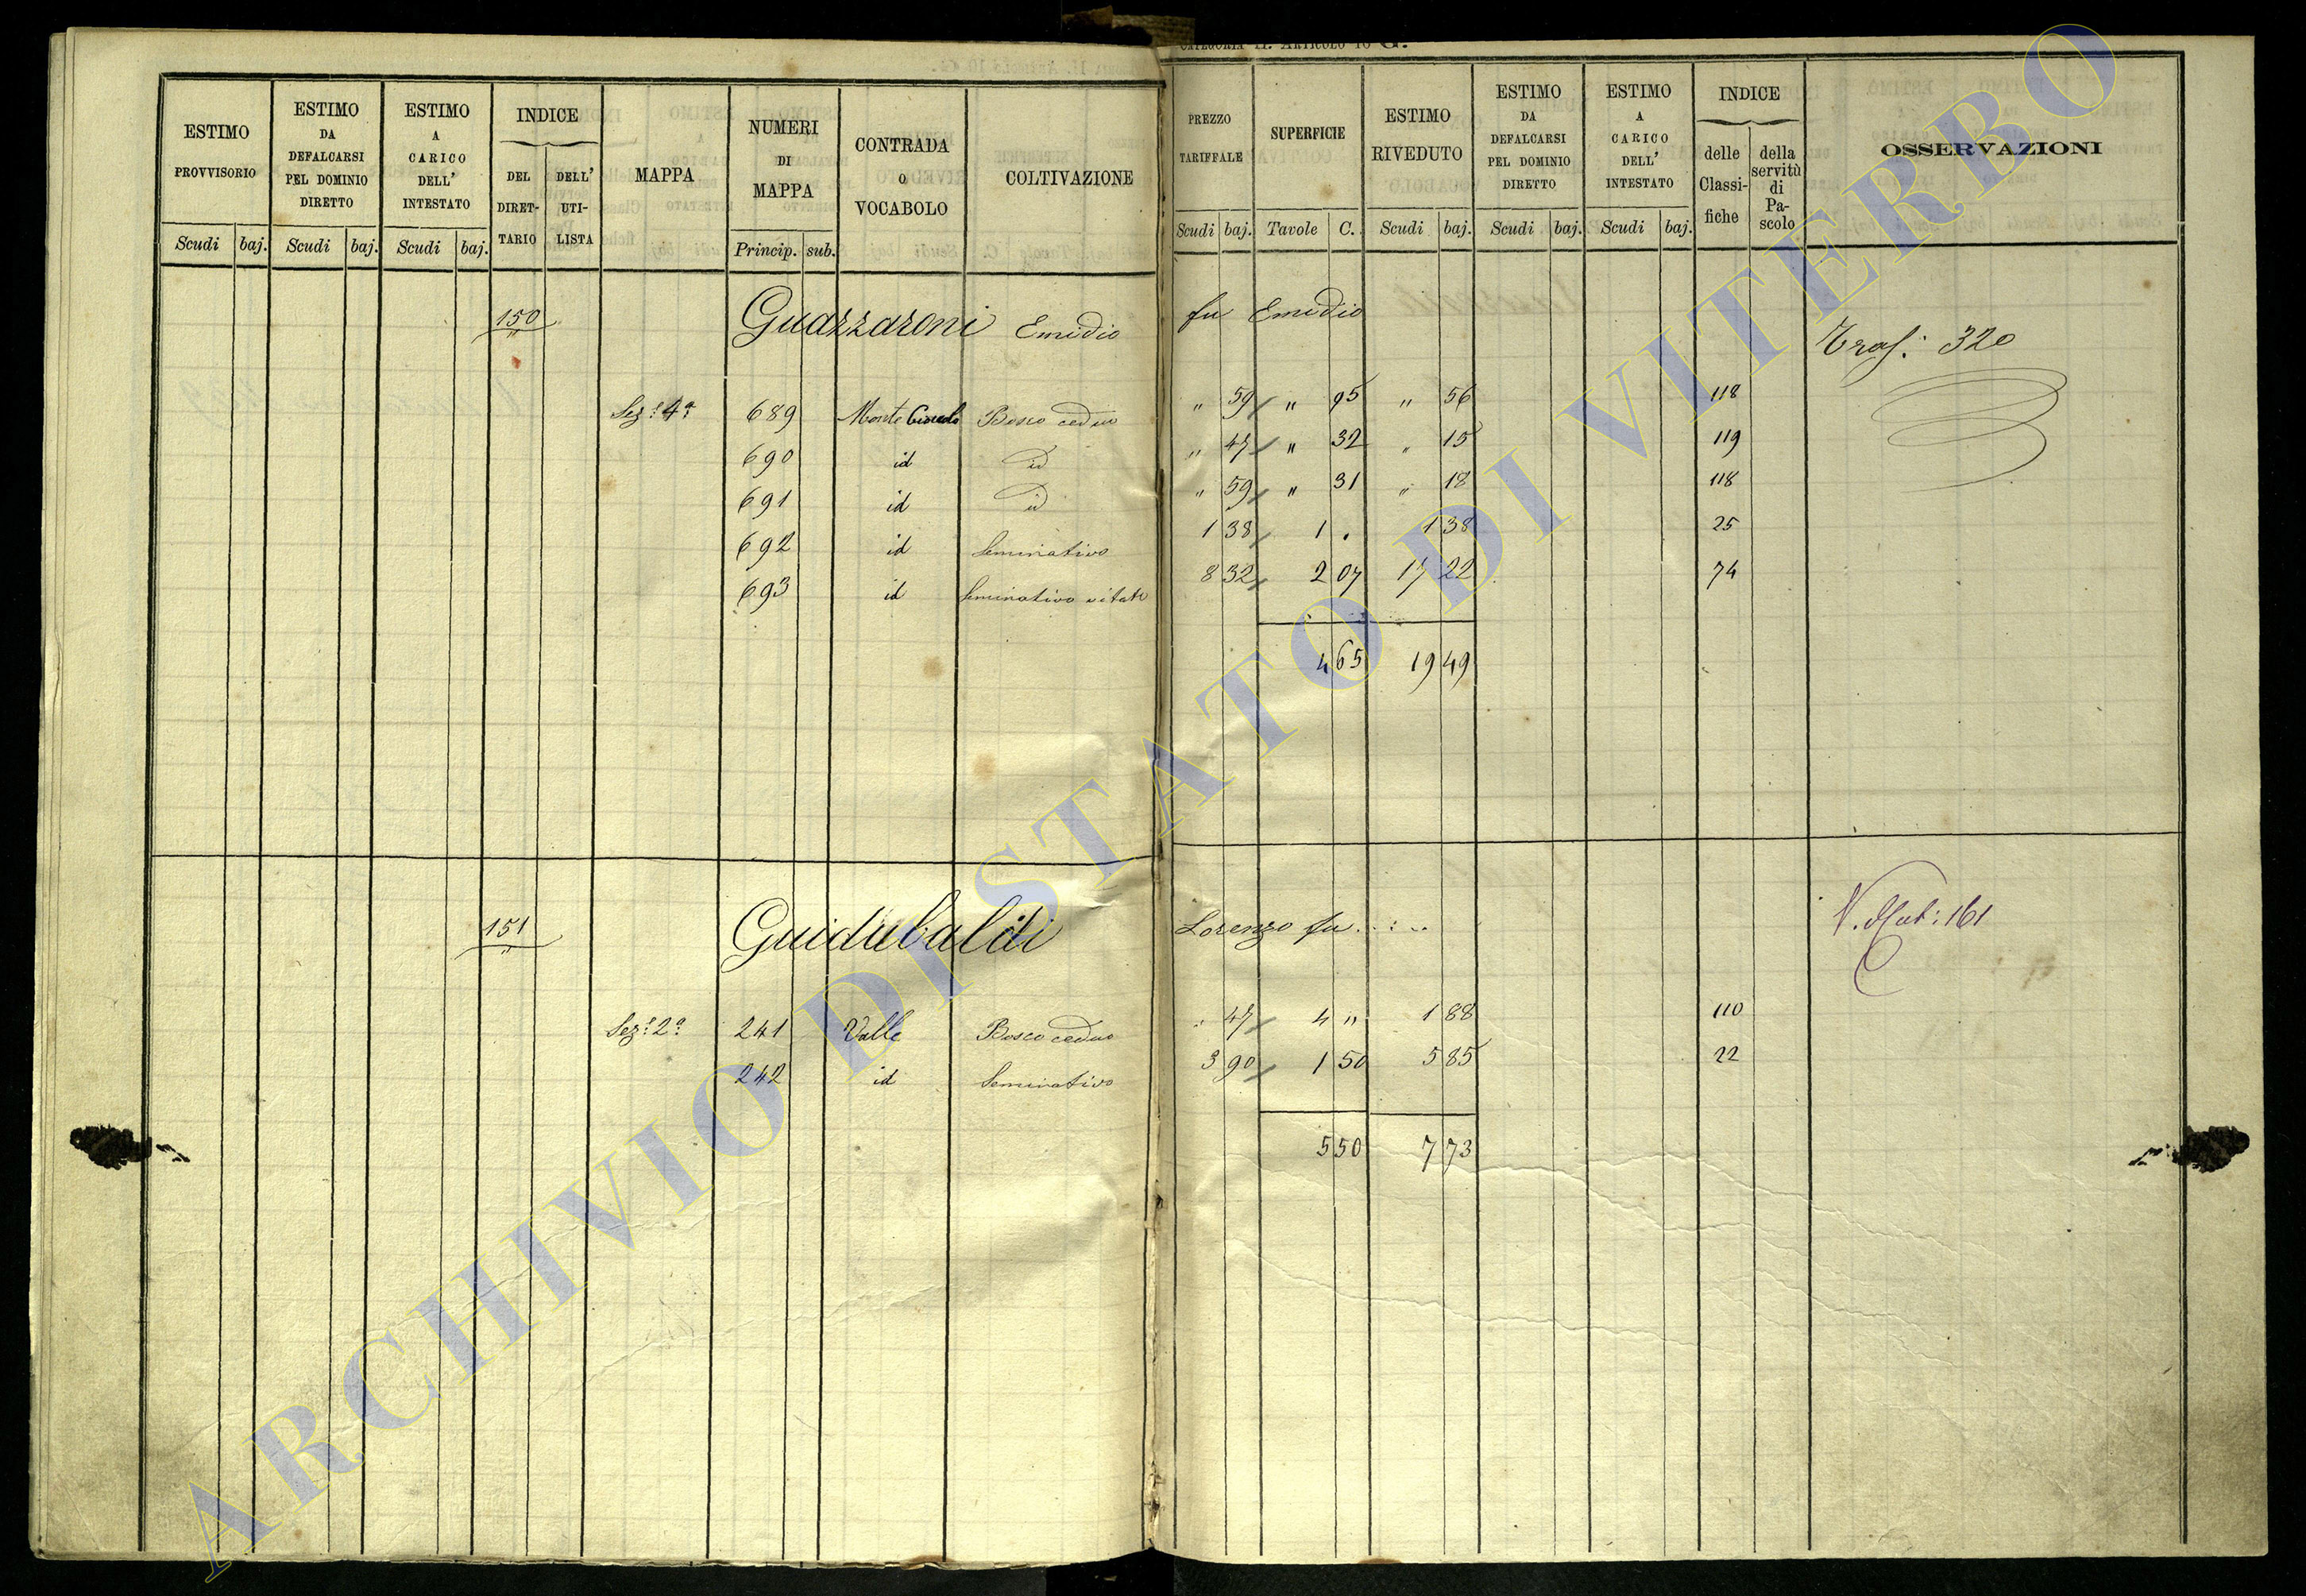 CATEGORIA II. ARTICOLO 10 G.
ESTIMO PROVVISORIO | ESTIMO DA DEFALCARSI PEL DOMINIO DIRETTO | ESTIMO A CARICO DELL' INTESTATO | INDICE | MAPPA | NUMERI DI MAPPA | CONTRADA O VOCABOLO | COLTIVAZIONE | PREZZO TARIFFALE | SUPERFICIE | ESTIMO RIVEDUTO | ESTIMO DA DEFALCARSI PEL DOMINIO DIRETTO | ESTIMO A CARICO DELL' INTESTATO | INDICE | OSSERVAZIONI
DEL DIRET-TARIO | DELL' UTI-LISTA | delle Classi-fiche | della servitù di Pa-scolo
Scudi | baj. | Scudi | baj. | Scudi | baj. | Princip. | sub. | Scudi | baj. | Tavole | C. | Scudi | baj. | Scudi | baj. | Scudi | baj.
150 Guazzaroni Emidio fu Emidio
Trasf: 320
Sez: 4a 689 Monte Bosco ceduo " 59 " 95 " 56 118
690 id id " 47 " 32 " 15 119
691 id id " 59 " 31 " 18 118
692 id Seminativo 1 38 1 . 1 38 25
693 id Seminativo vitato 8 32 2 07 17 22 74
4 65 19 49
151 Guidubaldi Lorenzo fu . . : . .
161
Sez: 2a 241 Valle Bosco ceduo " 47 4 " 1 88 110
242 id Seminativo 3 90 1 50 5 85 22
5 50 7 73
ARCHIVIO DI STATO DI VITERBO